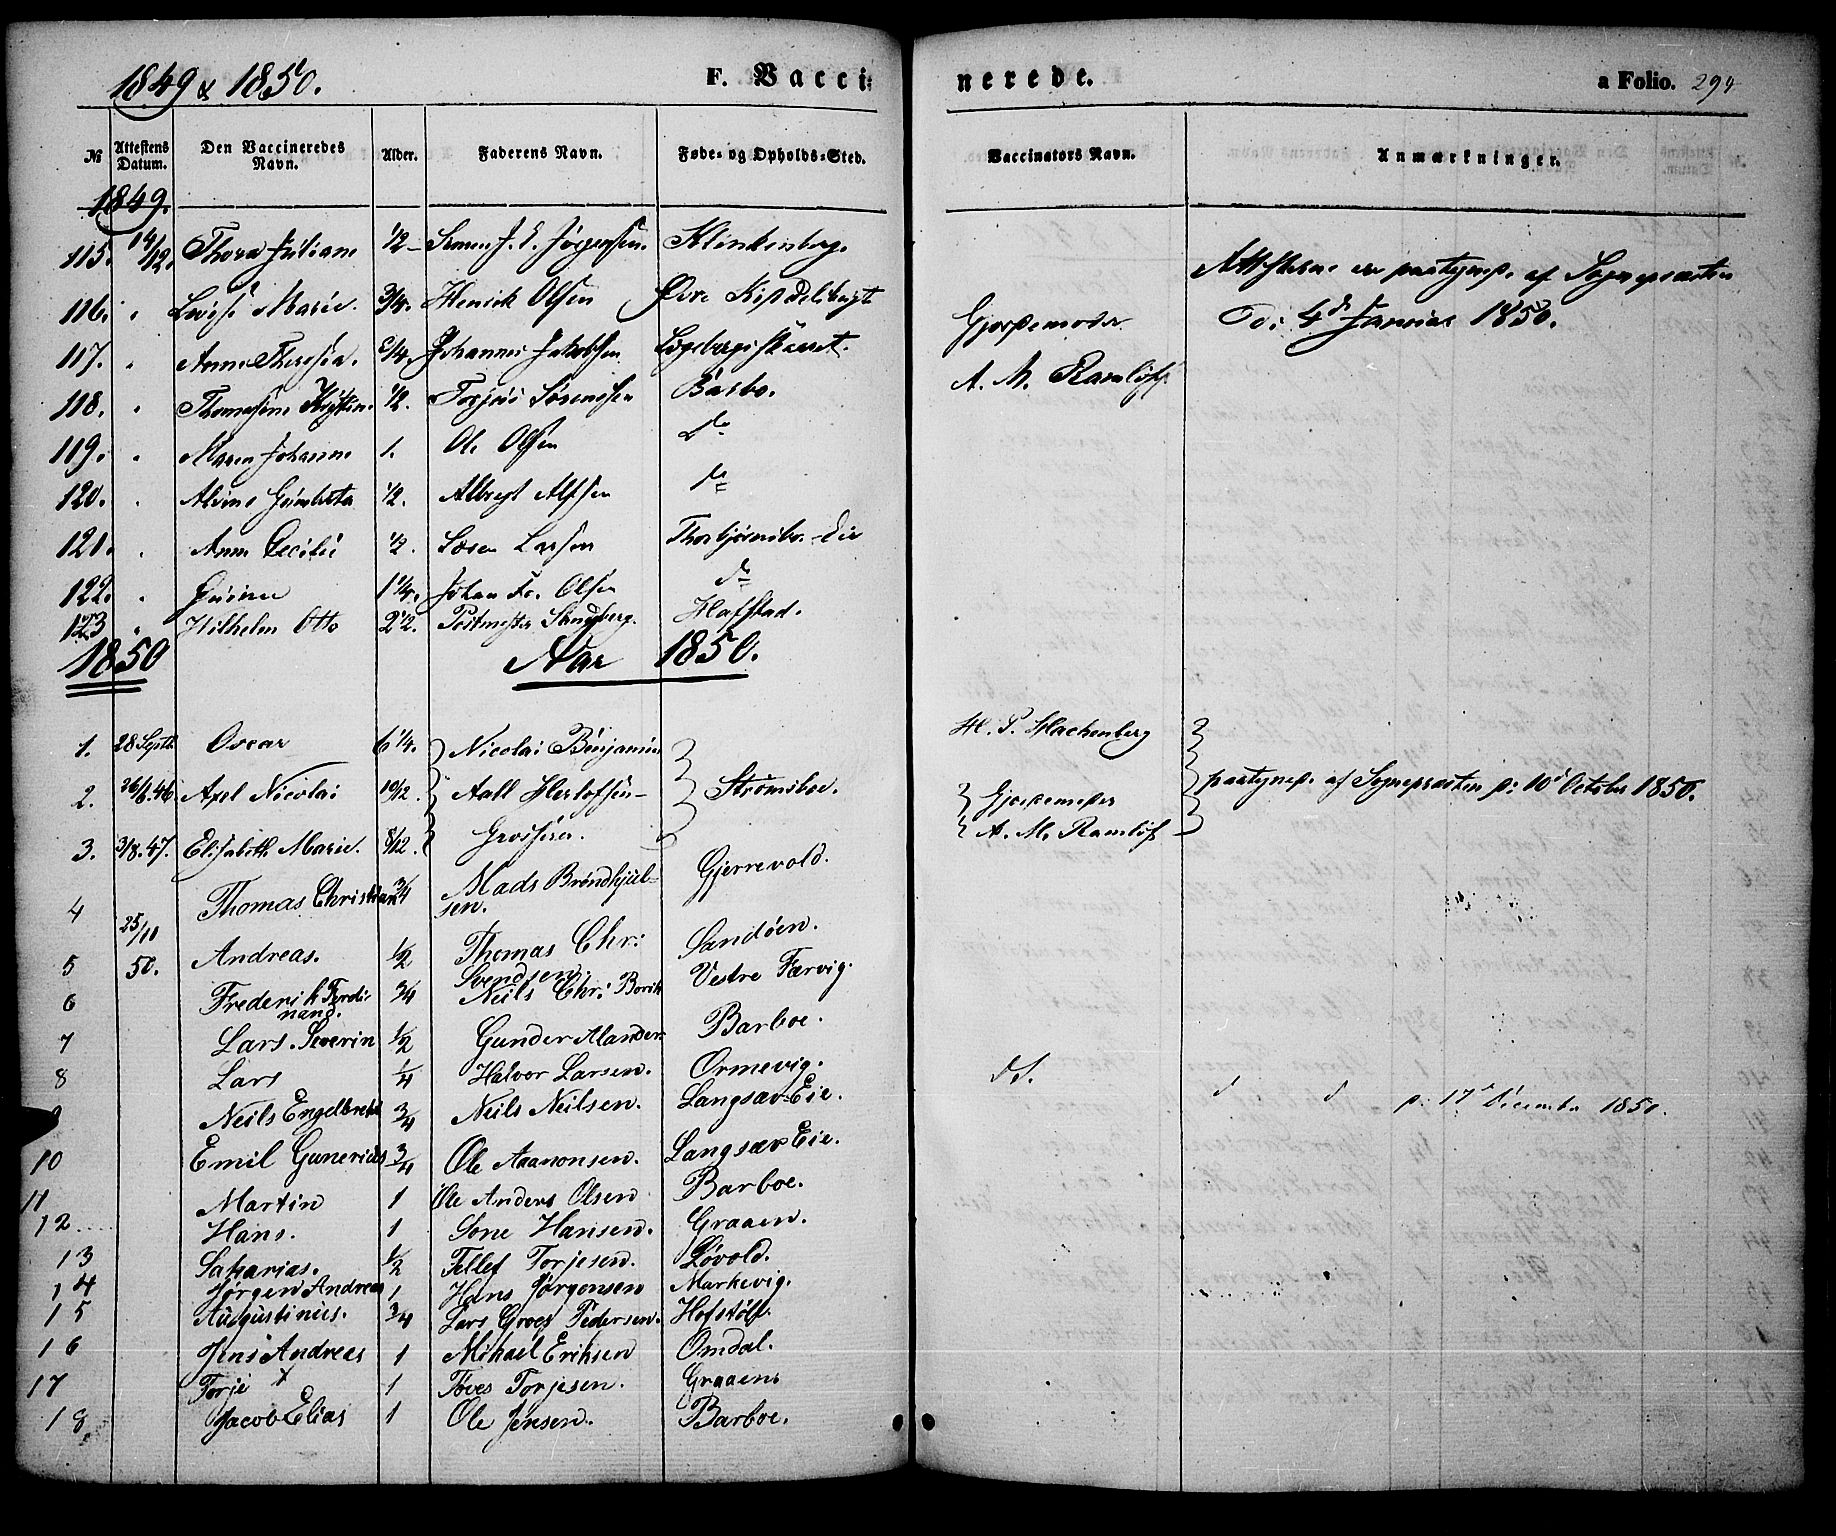 1849 & 1850. F. Vaccinerede. a Folio. 294
№ Attestens Datum. Den Vaccineredes Navn. Alder. Faderens Navn. Føde- og Opholds-Sted. Vaccinators Navn. Anmærkninger.
1849.
115. 14/12. Thora Juliane 1/2 Jørgensen. Klinkenberg.
Attesterne ere paategnede af Sognepræsten
116. " Lovise Marie. 3/4. Henrick Olsen Øvre
Gjordemoder
d: 4de Januar 1850.
117. " Anne Theresia. Johannes Jakobsen
A. M. Ramløff
118. " Thomasine 1/2. Torjus Sørensen Barbo.
119. " Maren Johanne 1. Ole Olsen do
120. " Alvine 1/2. Albregt Alfsen do
121. " Anne Cecilie 1/2. Søren Larsen
122. " Gurine 1 1/4. Johan Fr. Olsen do
123 " Wilhelm Otto 2 1/2. Postmester Sandberg. Hafstad.
1850 Aar 1850.
1. 28 Septb Oscar 6 1/4. Nicolai Benjamin H. P. Hachenberg
2. 26/6.46. Axel Nicolai 10/12. Aall Herlofsen- Strømsboe. Gjordemoder paategned. af Sognepræsten d: 10d October 1850.
3. 3/8.47. Elisabeth Marie. 8/12. Grosserer. A. M. Ramløff
4 Thomas Christian 3/4 Mads Brøndkjelsen. Gjerrevold.
25/11
5 50. Andreas. 1/2 Thomas Chr: Svendsen. Sandöen.
6 Frederik Ferdinand. 3/4 Neils Chr: Vestre Færvig.
7 Lars Severin 1/2 Gunder Barboe.
8 Lars 1/4 Halvor Larsen. Ormevig. do.
9 Neils Engelbret 3/4 Neils Neilsen. Langsæv Eie. d d d: 17d Decembr 1850.
10 Emil Gunerius 3/4 Ole Aanonsen. Langsæv Eie.
11 Martin 1 Ole Anders Olsen Barboe.
12 Hans. 1 Sone Hansen. Graaen.
13 Sakarias. 1/2 Tellef Torjesen. Løvold.
14 Jørgen Andreas 1 Hans Jørgensen Markevig.
15 Augustinus. 3/4 Lars Groes Pedersen.
16 Jens Andreas 1 Mikael Eriksen Omdal.
17 Torje x 1 Töves Torjesen. Graaen.
18. Jacob Elias 1 Ole Jensen. Barboe.